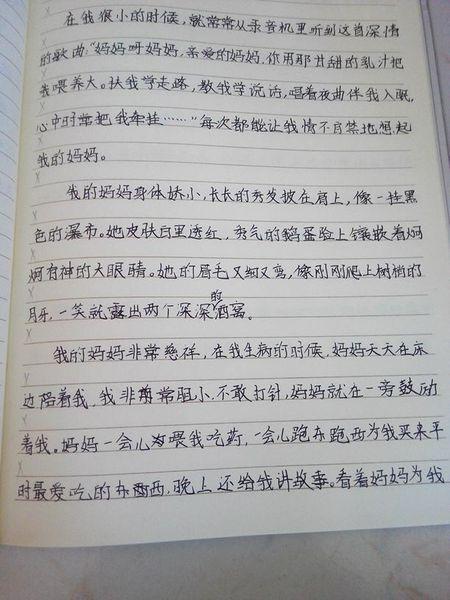 在我很小的时候，就常常从录音机里听到这首深情
的歌曲："妈妈呀妈妈，亲爱的妈妈，你用那甘甜的乳汁把
我喂养大。扶我学走路，教我学说话，唱着夜曲伴我入眠，
心中时常把我牵挂……"每次都能让我情不自禁地想起
我的妈妈。
我的妈妈身体娇小，长长的秀发披在肩上，像一挂黑
色的瀑布。她皮肤白里透红，秀气的鹅蛋脸上镶嵌着炯
炯有神的大眼睛。她的眉毛又细又弯，像刚刚爬上树梢的
月牙，一笑就露出两个深深的酒窝。
我的妈妈非常慈祥，在我生病的时候，妈妈天天在床
边陪着我，我非常胆小，不敢打针，妈妈就在一旁鼓励
着我。妈妈一会儿喂我吃药，一会儿跑东跑西为我买来平
时最爱吃的东西，晚上还给我讲故事。看着妈妈为我